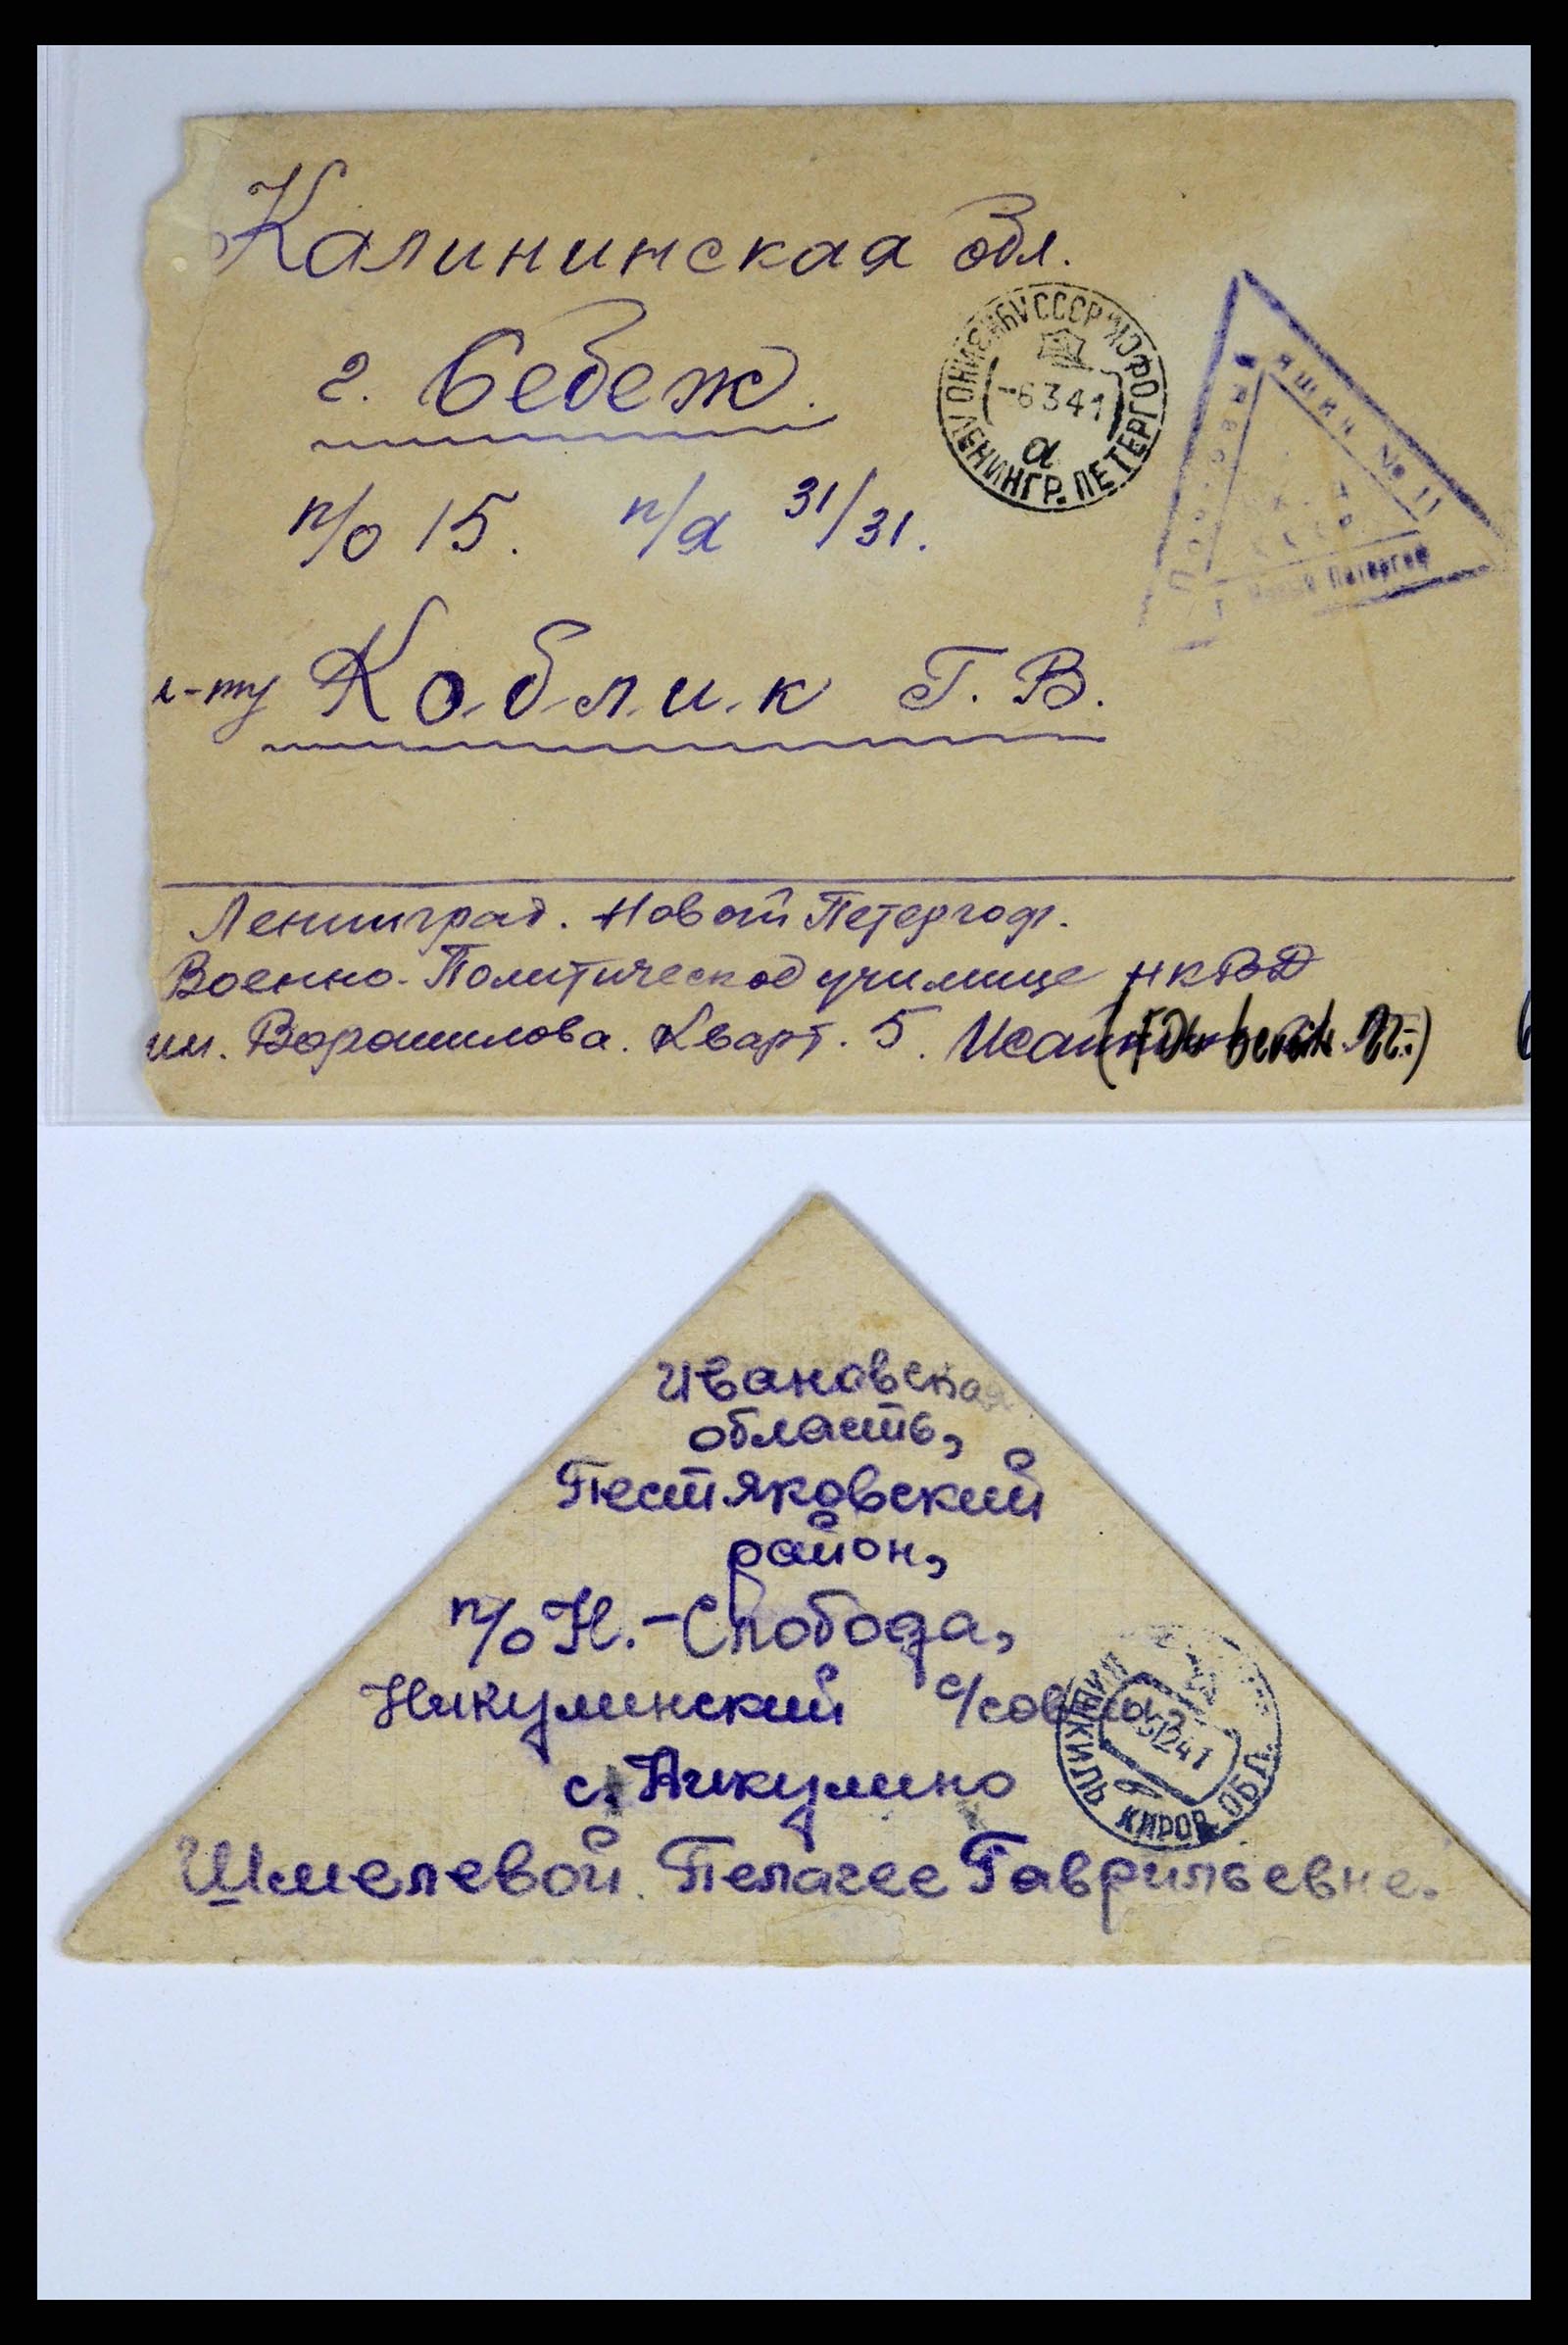 Калининская обл.
г. Себеж.
п/о 15. п/я 31/31.
л-ту Коблик Г. В.
СССР
-6341
а
ЛЕНИНГР. ПЕТЕРГОФ
ящик № 11
Новый Петергоф
Ленинград. Новый Петергоф.
Военно-Политическое училище НКВД
им. Ворошилова. Кварт. 5.
Ивановская
область,
Пестяковский
район,
п/о Н.-Слобода,
Никулинский с/совет
с. Никулино
Шмелевой Пелагее Гаврильевне.
КИРОВ. ОБЛ.